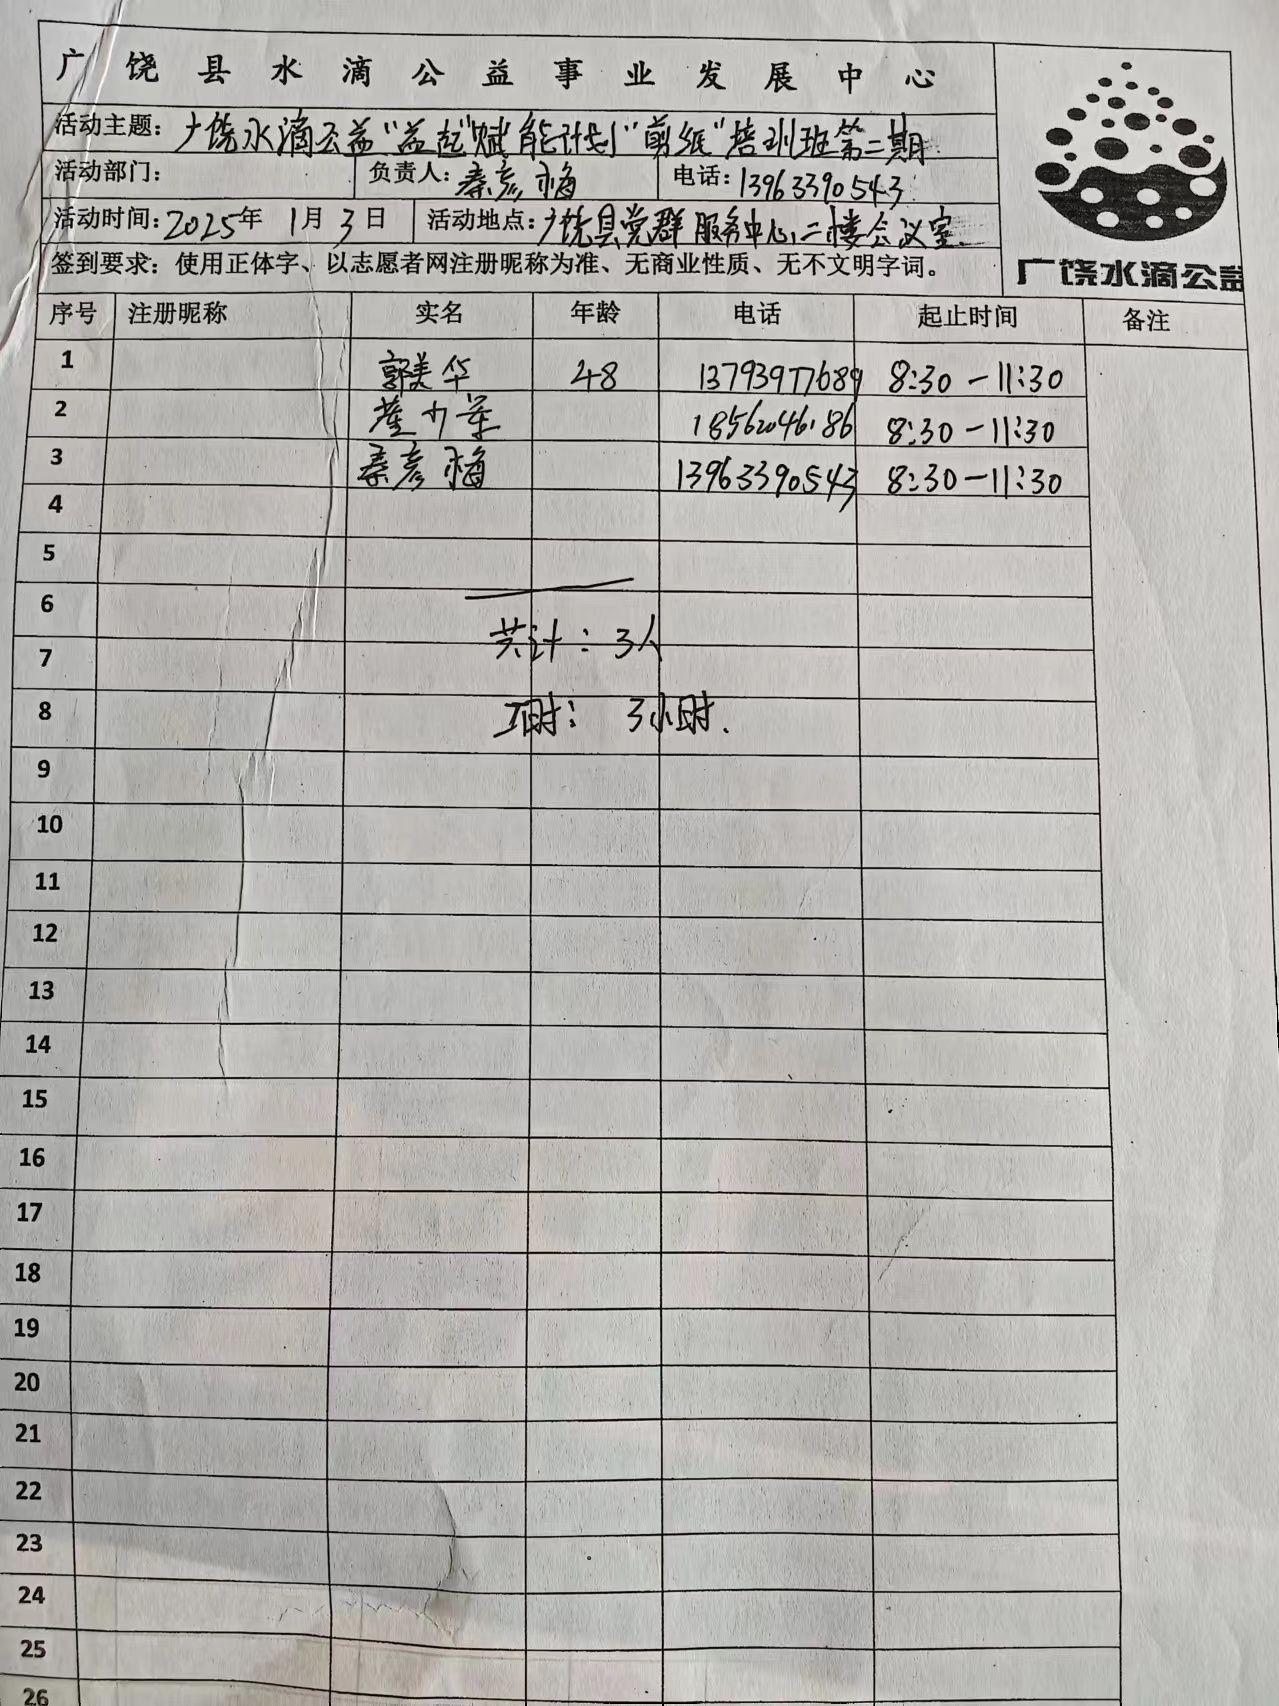 广饶县水滴公益事业发展中心
活动主题：广饶水滴公益"益起"赋能计划"剪纸"培训班第二期
活动部门： 负责人：秦彦梅 电话：13963390543
活动时间：2025年1月3日 活动地点：广饶县党群服务中心二楼会议室
签到要求：使用正体字、以志愿者网注册昵称为准、无商业性质、无不文明字词。
广饶水滴公益
序号 注册昵称 实名 年龄 电话 起止时间 备注
1 郭美华 48 13793977689 8:30-11:30
2 少军 18562046186 8:30-11:30
3 秦彦梅 13963390543 8:30-11:30
4
5
6
共计：3人
7
8 工时：3小时.
9
10
11
12
13
14
15
16
17
18
19
20
21
22
23
24
25
26